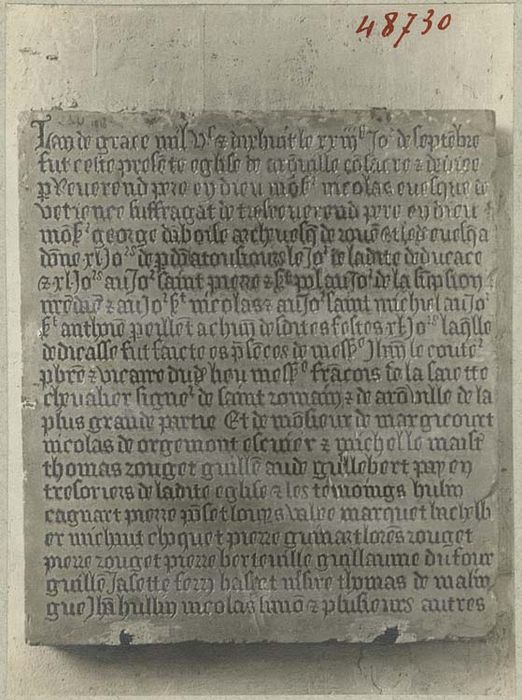 48730
Lan de grace mil Vc & dixhuit le xxiiije Jor de septẽbre
fut ceste presẽte eglise de arõville cõsacre & dediee
p Reverend pere en dieu mõsr nicolas evesque de
verience suffragãt de tresreverend pere en dieu
mõsr george dãboise archevesq de rouẽ & ledit evesq a
dõne xl Jors de pdõ a tousiours le Jor de ladite dedicace
& xl Jors au Jor saint pierre & st pol au Jor de la
& au Jor st nicolas & au Jor saint michel au Jor
st anthoine p eillet a chũn desdites festes xl Jors laqlle
dedicasse fut faicte es psẽces de messe Jhan le coute
pbre & vicaire dudit lieu messe frãcois de la saiette
chevalier signer de saint romain & de arõville de la
plus grande partie Et de mõsieur de margicourt
nicolas de orgemont escuier & michelle
thomas rouget guille aude guillebert pay en
tresoriers de ladite eglise & les temoings hulin
cagnart pierre louys valee marquet michelb
er michiut choquet pierre guinart lorẽs rouget
pierre rouget pierre berteville guillaume dufour
guille Jasette ferry thomas de malin
gue Jhã hullin nicolas simõ & plusieurs autres